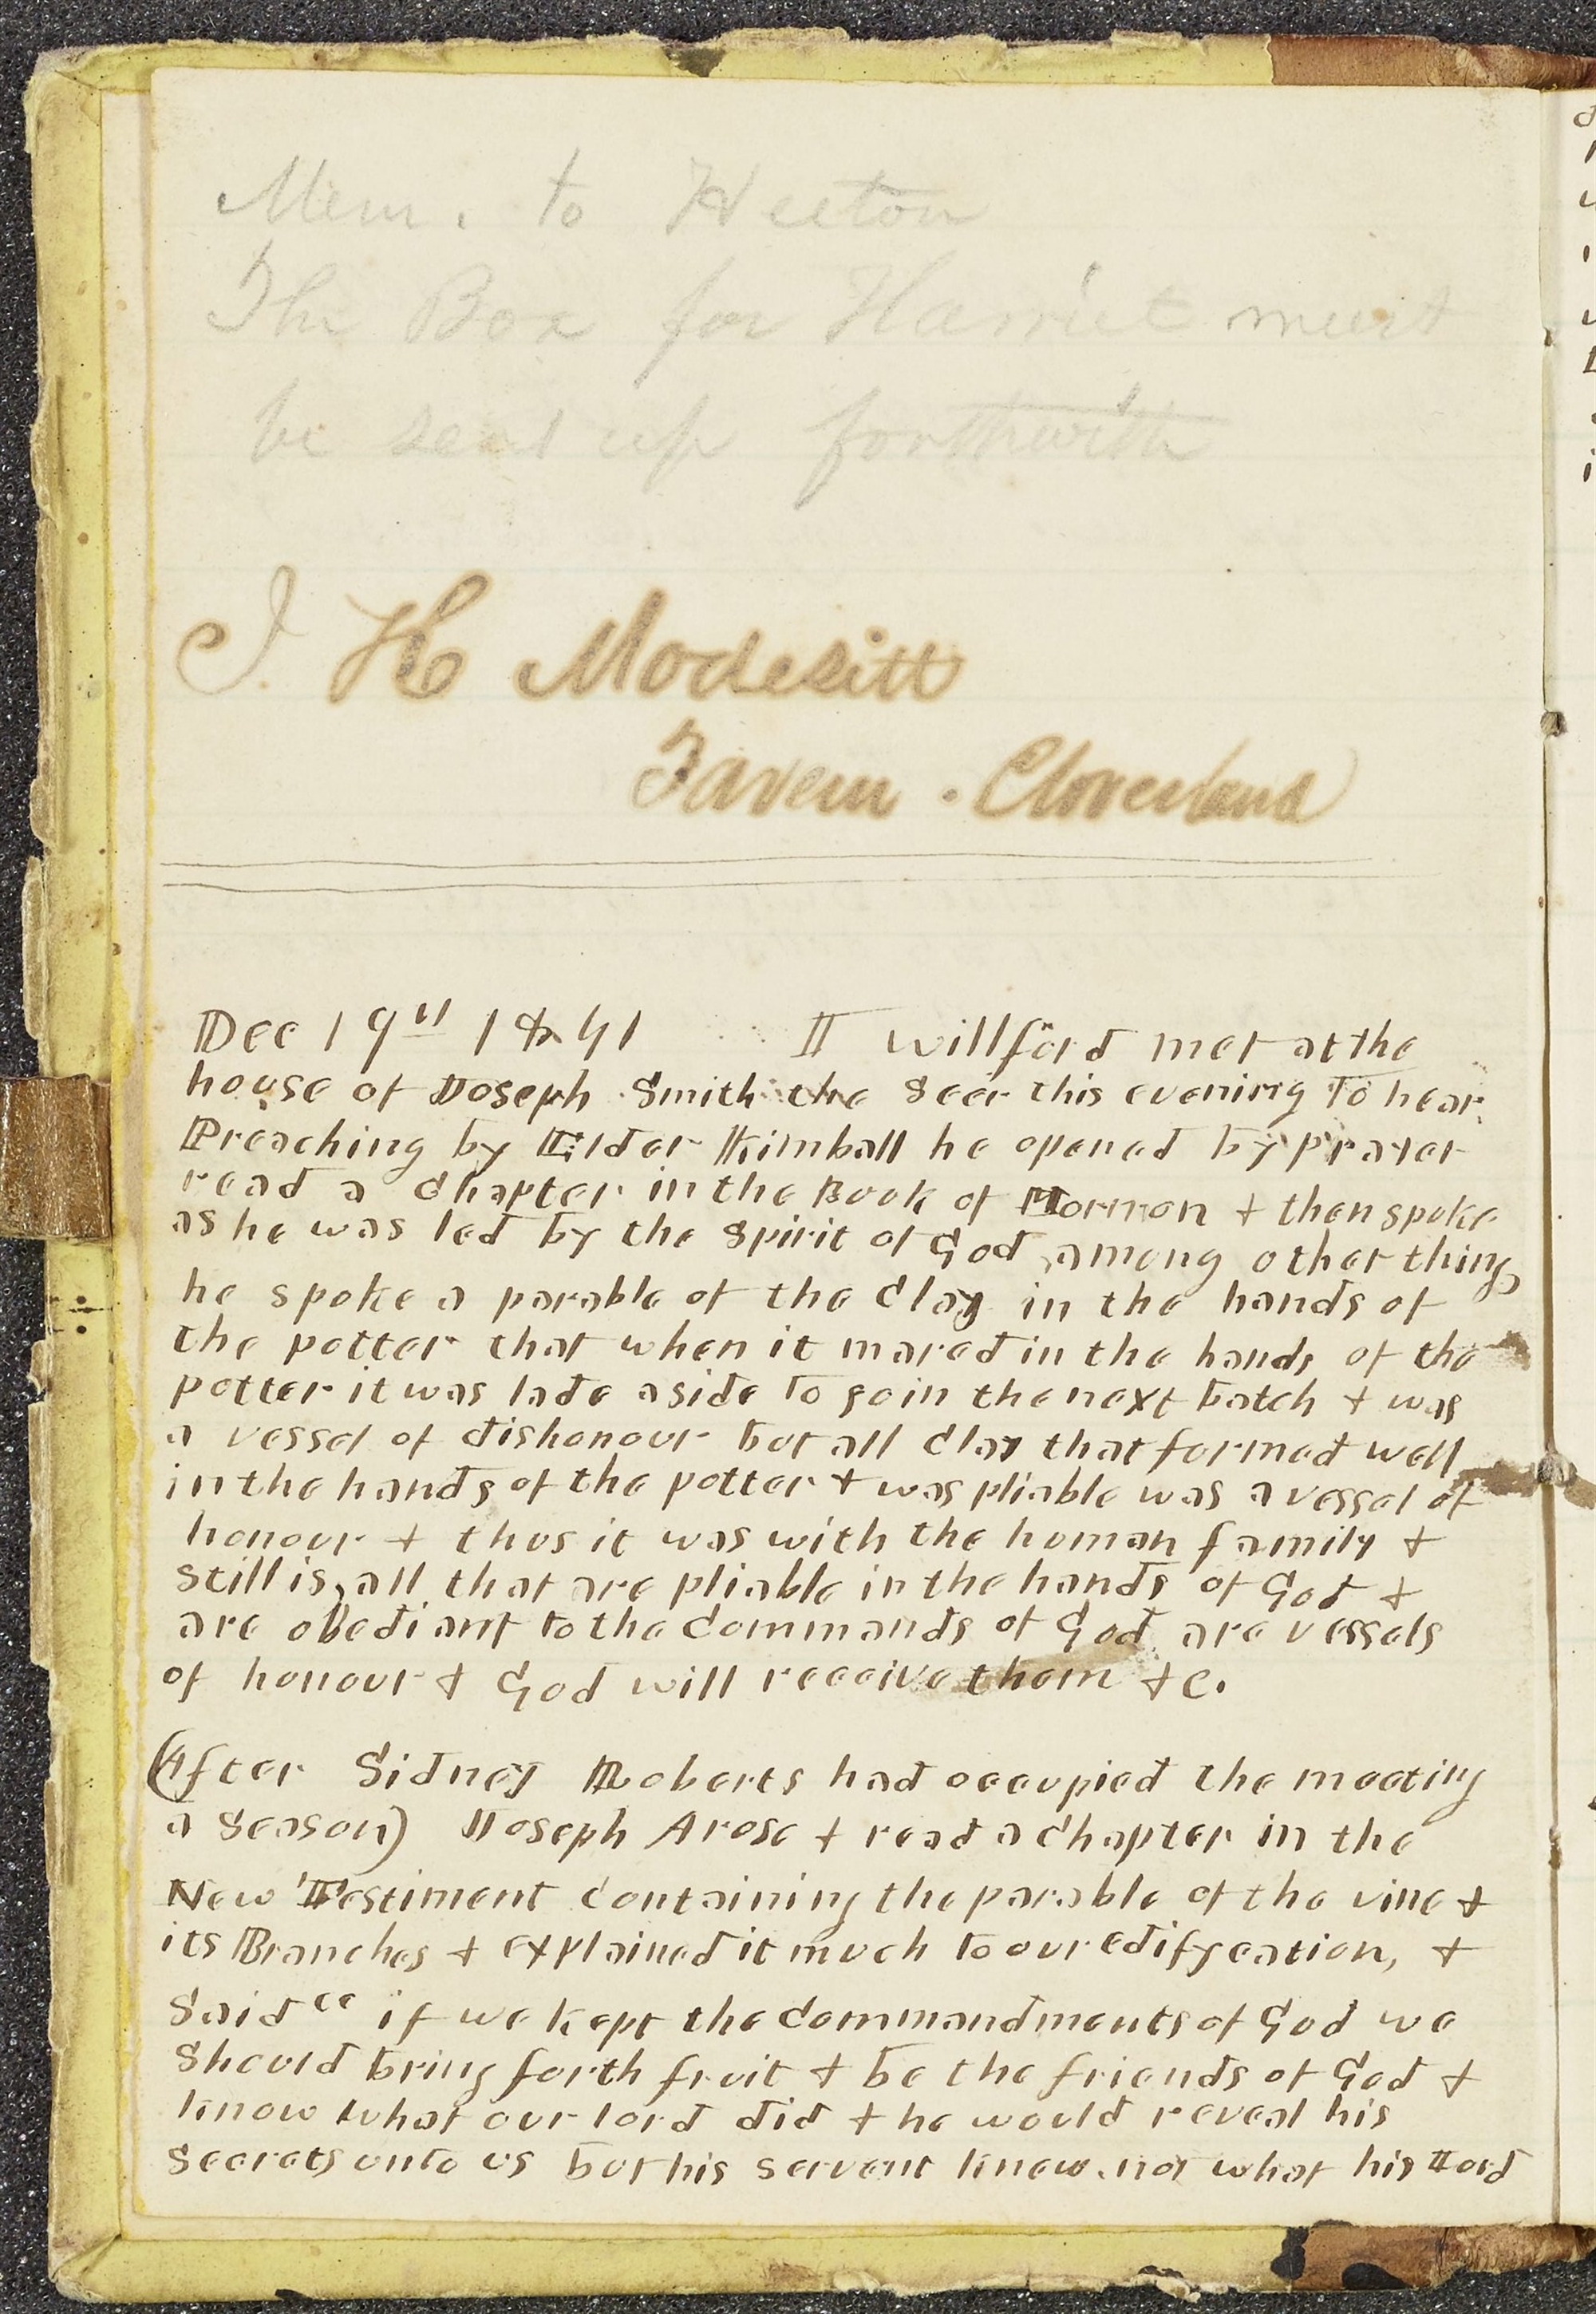 Mem. to Heeton
The Box for Harriet must
be send up forthwith
J. H Modesitt
Tavern . Cloverland
Dec 19th 1841 I willford met at the
house of Joseph Smith the Seer this evening to hear
Preaching by Elder Kimball he opened by prayer
read a chapter in the Book of Mormon & then spoke
as he was led by the spirit of God, among other things
he spoke a parable of the clay in the hands of
the potter that when it mared in the hands of the
potter it was lade aside to go in the next batch & was
a vessel of dishonour but all clay that formed well
in the hands of the potter & was pliable was a vessel of
honour & thus it was with the human family &
still is, all that are pliable in the hands of God &
are obediant to the commands of God are vessels
of honour & God will receive them &c.
(After Sidney Roberts had occupied the meeting
a season) Joseph Arose & read a chapter in the
New Testiment containing the parable of the vine &
its Branches & explained it much to our edifycation, &
said “ if we kept the commandments of God we
should bring forth fruit & be the friends of God &
know what our lord did & he would reveal his
secrets unto us but his servent knew not what his Lord